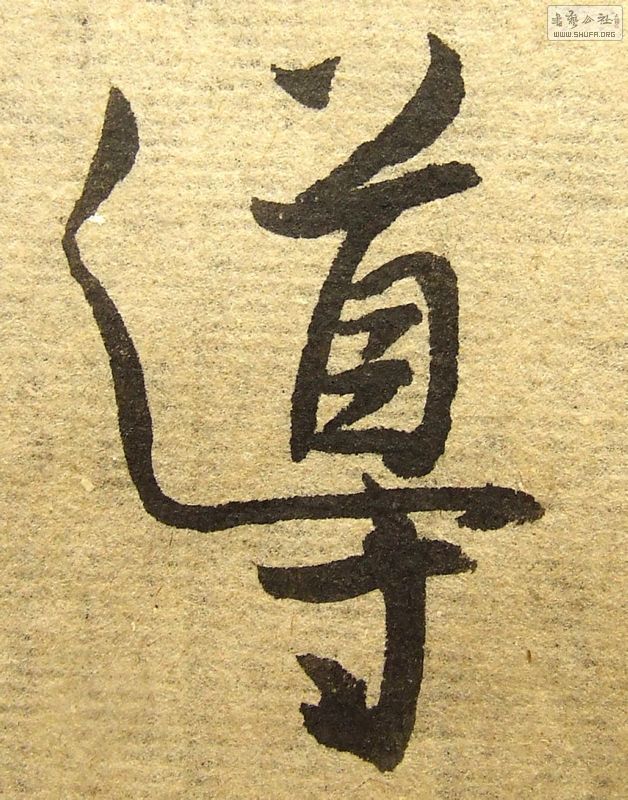 導
书艺公社
WWW.SHUFA.ORG